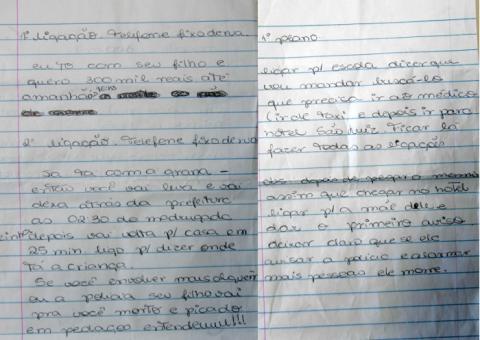 1º ligação. Telefone fixo dena.
eu to com seu filho e
quero 300 mil reais até
amanhã
2º ligação. Telefone fixo dena
Ja ta com a grana -
então você vai leva e vai
deixa atrás da prefeitura
as 02:30 da madrugada
depois vai volta p/ casa em
25 min. ligo p/ dizer onde
tá a criança.
Se você envolver mais alguém
ou a policia seu filho vai
pra você morto e picado
em pedaços entendeuuu!!!
1º plano.
ligar p/ escola dizer que
vou mandar buscá-lo
que precisa ir ao médico
(ir de taxi e depois ir para
hotel São Luiz. Ficar lá
fazer todas as ligações
assim que chegar no hotel
ligar p/ a mãe dele e
dar o primeiro aviso
deixar claro que se ele
avisar a policia e
mais pessoas ele morre.